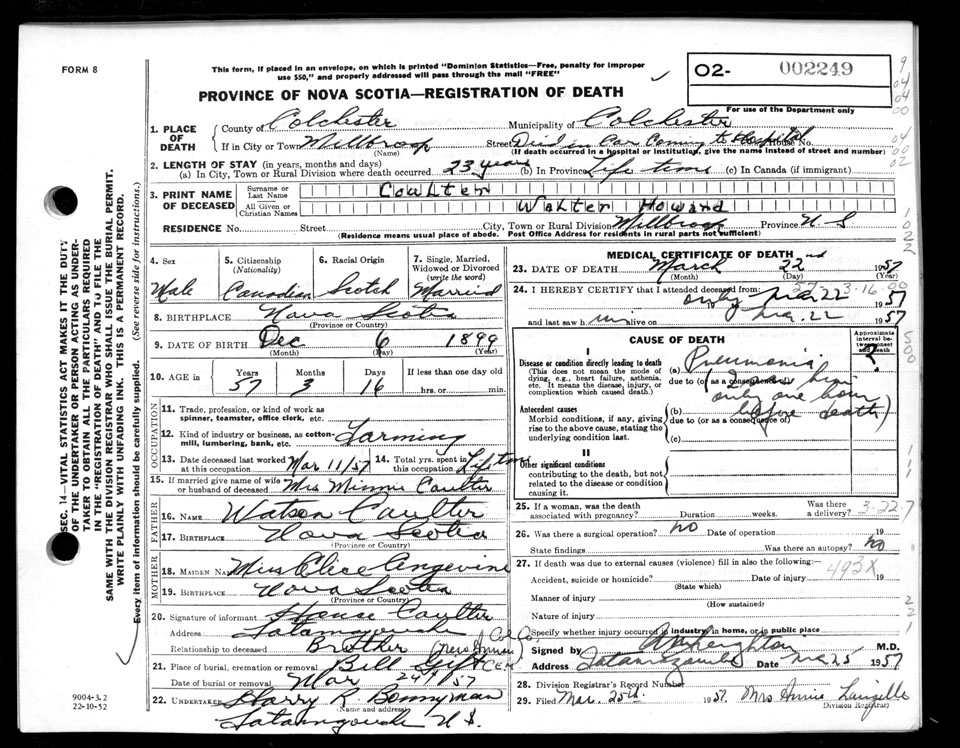 FORM 8
This form, if placed in an envelope, on which is printed "Dominion Statistics—Free, penalty for improper
use $50," and properly addressed will pass through the mail "FREE"
O2- 002249
PROVINCE OF NOVA SCOTIA—REGISTRATION OF DEATH
For use of the Department only
1. PLACE OF DEATH
County of Colchester Municipality of Colchester
If in City or Town Street Died in Car Coming to Hospital House No.
(Name) (If death occurred in a hospital or institution, give the name instead of street and number)
2. LENGTH OF STAY (in years, months and days)
(a) In City, Town or Rural Division where death occurred 23 years (b) In Province Life time (c) In Canada (if immigrant)
3. PRINT NAME OF DECEASED
Surname or Last Name Coulter
All Given or Christian Names Walter Howard
RESIDENCE No. Street City, Town or Rural Division Province N S
(Residence means usual place of abode. Post Office Address for residents in rural parts not sufficient)
4. Sex Male
5. Citizenship (Nationality) Canadian
6. Racial Origin Scotch
7. Single, Married, Widowed or Divorced (write the word) Married
8. BIRTHPLACE Nova Scotia
(Province or Country)
9. DATE OF BIRTH Dec 6 1899
(Month) (Day) (Year)
10. AGE in Years Months Days If less than one day old
57 3 16 hrs. or min.
OCCUPATION
11. Trade, profession, or kind of work as
spinner, teamster, office clerk, etc.
12. Kind of industry or business, as cotton-
mill, lumbering, bank, etc. Farming
13. Date deceased last worked at this occupation Mar 11/57
14. Total yrs. spent in this occupation Lifetime
15. If married give name of wife
or husband of deceased Mrs Minnie Coulter
FATHER
16. NAME Watson Coulter
17. BIRTHPLACE Nova Scotia
(Province or Country)
MOTHER
18. MAIDEN NAME Miss Angevine
19. BIRTHPLACE Nova Scotia
(Province or Country)
20. Signature of informant Coulter
Address Tatamagouche Col Co
Relationship to deceased Brother
21. Place of burial, cremation or removal Cem
Date of burial or removal Mar 24/57
22. UNDERTAKER Harry R Bonnyman
(Name and address)
Tatamagouche N S.
MEDICAL CERTIFICATE OF DEATH
23. DATE OF DEATH March 22nd 1957
(Month) (Day) (Year)
24. I HEREBY CERTIFY that I attended deceased from:
only Mar 22 1957
and last saw h im alive on Mar. 22 1957
CAUSE OF DEATH
Approximate interval between onset and death
I
Disease or condition directly leading to death
(This does not mean the mode of
dying, e.g., heart failure, asthenia,
etc. It means the disease, injury, or
complication which caused death.)
(a) Pneumonia ?
due to (or as a consequence of)
(I saw him
only one hour
before death)
Antecedent causes
Morbid conditions, if any, giving
rise to the above cause, stating the
underlying condition last.
(b)
due to (or as a consequence of)
(c)
II
Other significant conditions
contributing to the death, but not
related to the disease or condition
causing it.
25. If a woman, was the death
associated with pregnancy? Duration weeks. Was there a delivery?
3-22-7
26. Was there a surgical operation? no Date of operation 19
State findings Was there an autopsy? no
27. If death was due to external causes (violence) fill in also the following:—
492X
Accident, suicide or homicide? Date of injury 19
(State which)
Manner of injury
(How sustained)
Nature of injury
Specify whether injury occurred in industry in home, or in public place
Signed by M.D.
Address Tatamagouche Date Mar 25 1957
28. Division Registrar's Record Number
29. Filed Mar. 25th. 1957. Mrs Annie Langille
Division Registrar
9004-3.2
22-10-52
SEC. 14—VITAL STATISTICS ACT MAKES IT THE DUTY
OF THE UNDERTAKER OR PERSON ACTING AS UNDER-
TAKER TO OBTAIN ALL THE PARTICULARS REQUIRED
IN THE "REGISTRATION OF DEATH" AND TO FILE THE
SAME WITH THE DIVISION REGISTRAR WHO SHALL ISSUE THE BURIAL PERMIT.
WRITE PLAINLY WITH UNFADING INK. THIS IS A PERMANENT RECORD.
Every item of information should be carefully supplied. (See reverse side for instructions.)